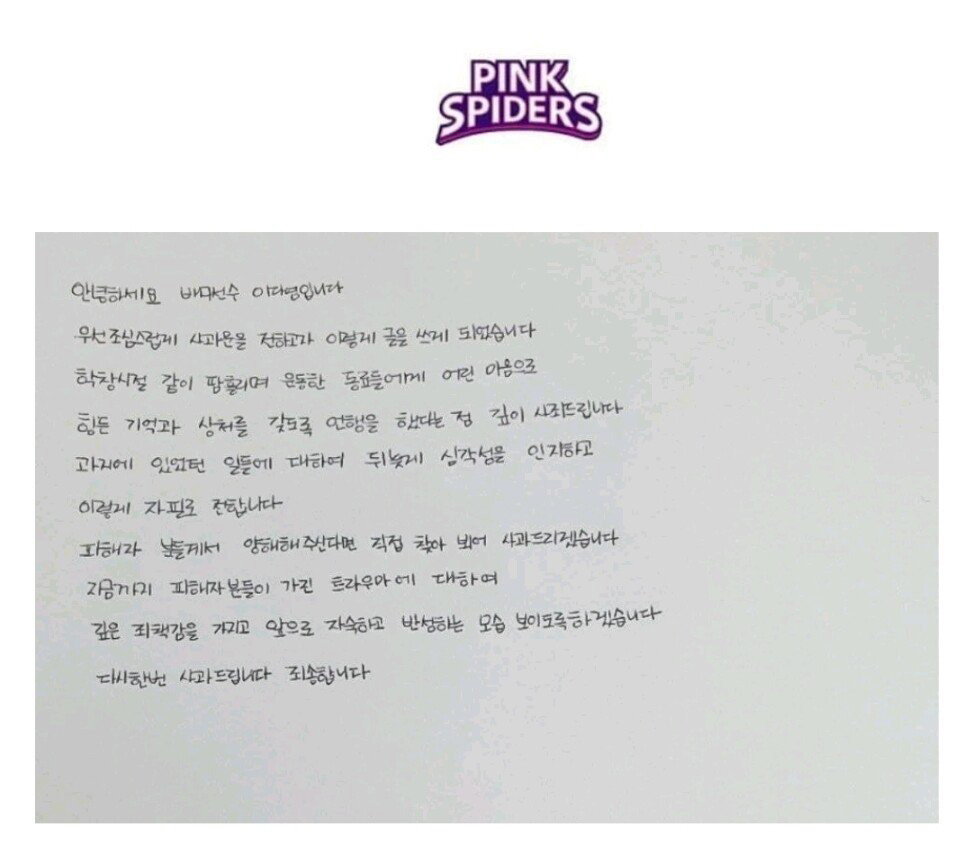 PINK
SPIDERS
안녕하세요 배구선수 이다영입니다
우선 조심스럽게 사과문을 전하고자 이렇게 글을 쓰게 되었습니다
학창시절 같이 땀흘리며 운동한 동료들에게 어린 마음으로
힘든 기억과 상처를 갖도록 언행을 했다는 점 깊이 사죄드립니다
과거에 있었던 일들에 대하여 뒤늦게 심각성을 인지하고
이렇게 자필로 전합니다
피해자 분들께서 양해해주신다면 직접 찾아 뵈어 사과드리겠습니다
지금까지 피해자분들이 가진 트라우마에 대하여
깊은 죄책감을 가지고 앞으로 자숙하고 반성하는 모습 보이도록하겠습니다
다시한번 사과드립니다 죄송합니다